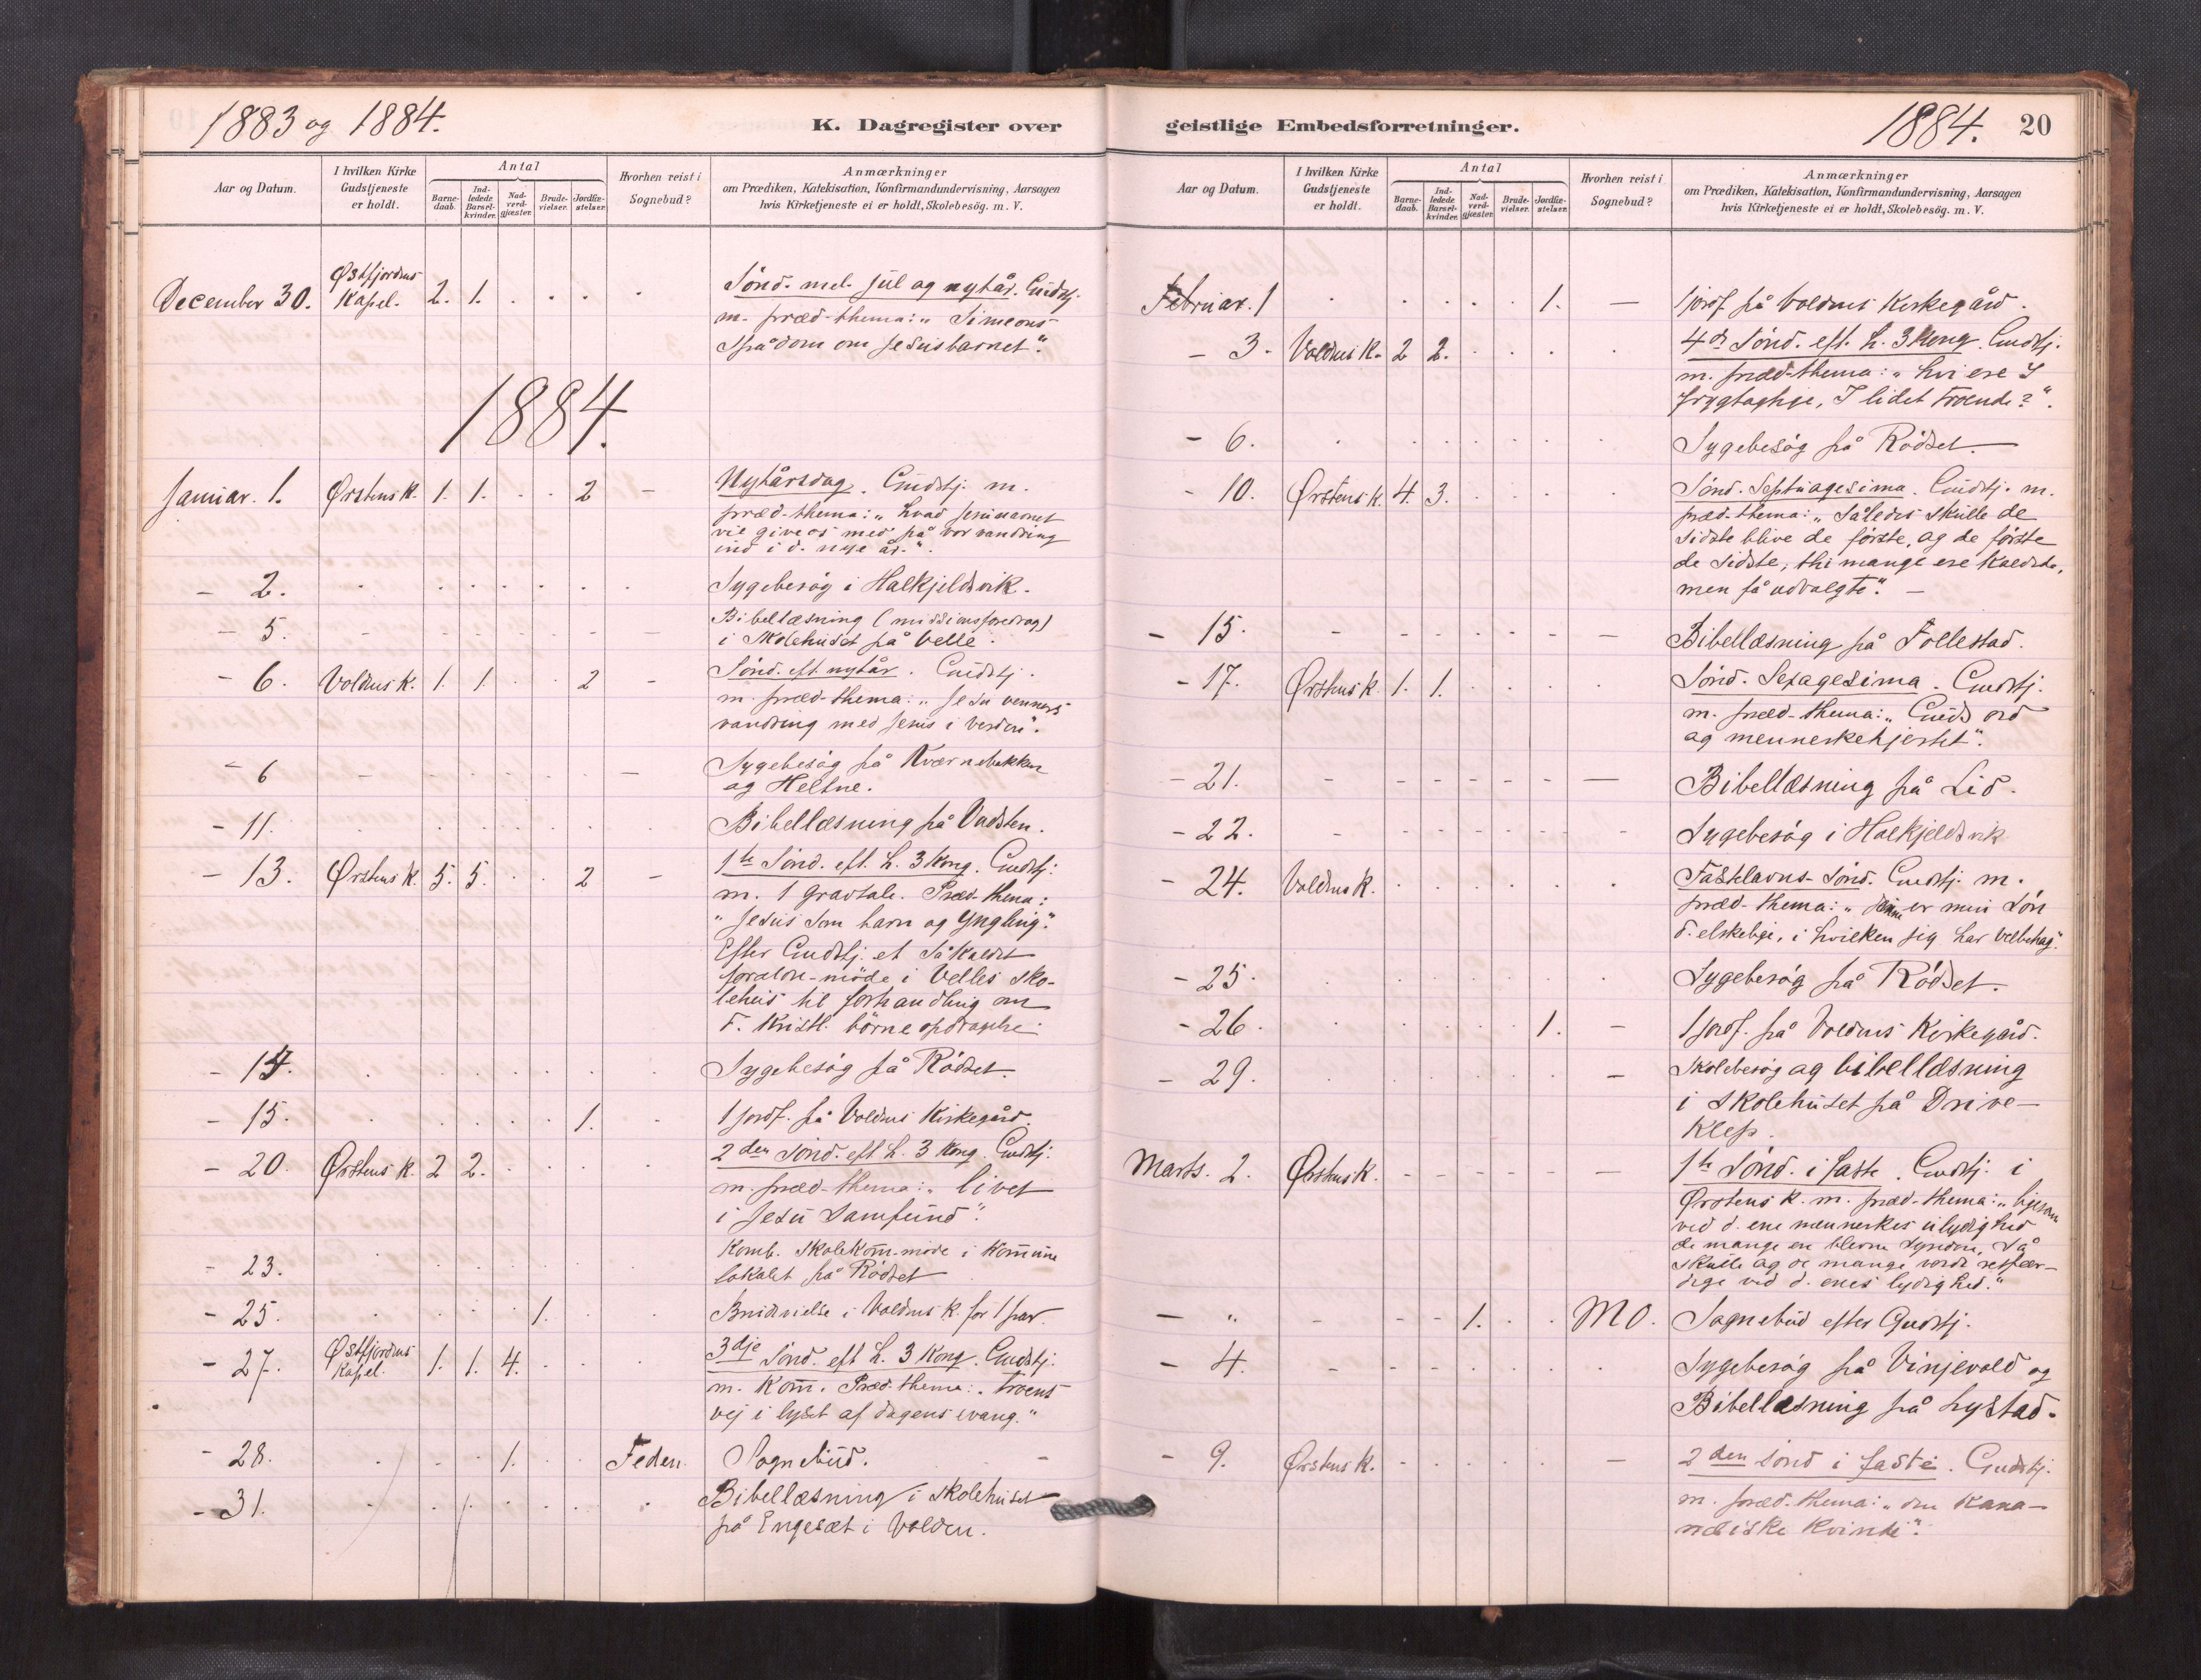 1883 og 1884.
K. Dagregister over
Aar og Datum.
I hvilken Kirke
Gudstjeneste
er holdt.
Antal
Barne-
daab.
Ind-
ledede
Barsel-
kvinder.
Nad-
verd-
gjæster.
Brude-
vielser.
Jordfæ-
stelser.
Hvorhen reist i
Sognebud?
Anmærkninger
om Prædiken, Katekisation, Konfirmandundervisning, Aarsagen
hvis Kirketjeneste ei er holdt, Skolebesög. m. V.
December 30. Østfjordens Kapel. 2. 1. Sönd. mel. jul og nytår. Gudstj.
m. præd-thema: "Simeons
spådom om Jesusbarnet".
1884.
Januar. 1. Ørstens K. 1. 1. 2 - Nytårsdag. Gudstj. m.
præd-thema: "hvad Jesunavnet
vil give os med på vor vandring
ind i d. nye år.".
- 2. Sygebesög i Halkjeldsvik.
- 5. Bibellæsning (missionsforedrag)
i Skolehuset på Velle.
- 6. Voldens K. 1. 1. 2 - Sönd. eft nytår. Gudstj.
m. præd-thema: "Jesu venners
vandring med Jesus i verden".
- 6 Sygebesög på Kværnebakken
og Heltne.
- 11. Bibellæsning på Vadsten.
- 13. Ørstens K. 5. 5. 2 - 1ste Sönd. eft. h. 3 Kong. Gudstj.
m. 1 gravtale. Præd-thema:
"Jesus som barn og Yngling".
Efter Gudstj. et såkaldet
forældre-möde i Velles Sko-
lehus til forhandling om
d. kristl. börneopdragelse.
- 14. Sygebesög på Rödset.
- 15. 1. 1 jordf. på Voldens Kirkegård.
- 20. Ørstens K. 2 2. 2den Sönd. eft h. 3 Kong. Gudstj.
m. præd-thema: "livet
i Jesu Samfund".
- 23. Komb. Skolekom̄-möde i Kom̄une
lokalet på Rödset
- 25. 1. Brudevielse i Voldens K. for 1 par.
- 27. Østfjordens Kapel. 1. 1. 4. 3dje Sönd. eft h. 3 Kong. Gudstj.
m. Kom̄. Præd-thema: "troens
vej i lyset af dagens evang."
- 28. 1. Feden. Sognebud.
- 31. Bibellæsning i Skolehuset
på Engesæt i Volden.
geistlige Embedsforretninger.
1884. 20
Aar og Datum.
I hvilken Kirke
Gudstjeneste
er holdt.
Antal
Barne-
daab.
Ind-
ledede
Barsel-
kvinder.
Nad-
verd-
gjæster.
Brude-
vielser.
Jordfæ-
stelser.
Hvorhen reist i
Sognebud?
Anmærkninger
om Prædiken, Katekisation, Konfirmandundervisning, Aarsagen
hvis Kirketjeneste ei er holdt, Skolebesög. m. V.
Februar. 1 1. - 1 jordf på Voldens Kirkegård.
- 3. Voldens K. 2 2. 4de Sönd. eft. h. 3 Kong. Gudstj.
m. præd-thema: "hvi ere I
frygtagtige, I lidet troende?".
- 6. Sygebesög på Rödset.
- 10. Ørstens K. 4. 3. Sönd. Septuagesima. Gudstj. m.
præd-thema: "Således skulle de
sidste blive de förste, og de förste
de sidste; thi mange ere kaldede,
men få udvalgte". -
- 15. Bibellæsning på Follestad.
- 17. Ørstens K. 1. 1. Sönd. Sexagesima. Gudstj.
m. præd-thema: "Guds ord
og menneskehjertet".
- 21. Bibellæsning på Lid.
- 22. Sygebesög i Halkjeldsvik
- 24. Voldens K. Fastelavns-Sönd. Gudstj. m.
præd-thema: "denne er min Sön
d. elskelige, i hvilken jeg har velbehag".
- 25. Sygebesög på Rödset.
- 26. 1. - 1 jordf. på Voldens Kirkegård.
- 29. Skolebesög og bibellæsning
i Skolehuset på Drive-
klep.
Marts. 2. Ørstens K. 1ste Sönd. i faste. Gudstj. i
Ørstens K. m. præd-thema: "ligesom
ved d. ene menneskes ulydighed
de mange ere blevne syndere, så
skulle og de mange vorde retfær-
dige ved d. enes lydighed."
- " 1. MO. Sognebud efter Gudstj.
- 4. Sygebesög på Vinjevold og
Bibellæsning på Lystad.
- 9. Ørstens K. - 2den Sönd i faste. Gudstj.
m. præd-thema: "den kana-
næiske kvinde".